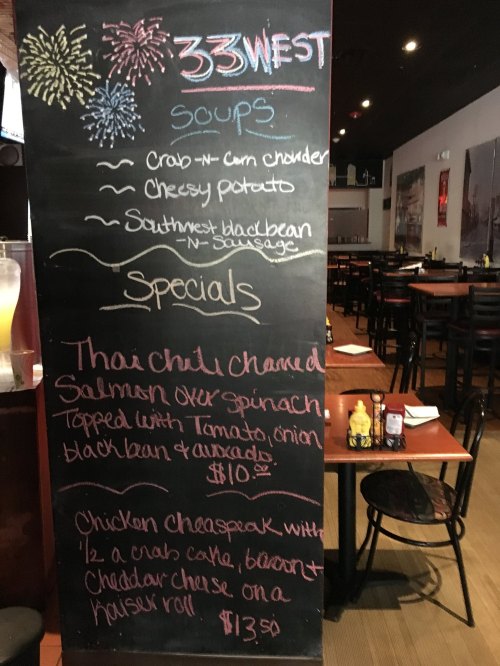 33 WEST
Soups
~ Crab -N- Corn chowder
~ Cheesy potato
~ Southwest blackbean
-N- Sausage
Specials
Thai chili charred
Salmon over spinach
Topped with Tomato, onion,
black bean & avocado
$10.00
Chicken cheaspeak with
1/2 a crab cake, bacon +
Cheddar cheese on a
Kaiser roll
$13.50